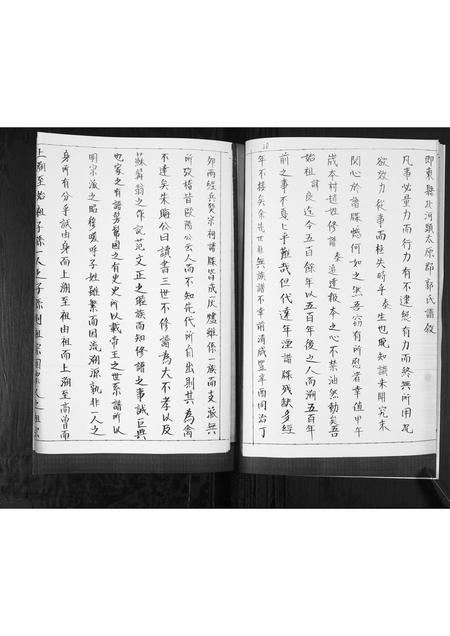 即東縣北河頭太原郡郭氏譜敘
凡事必量力而行力有不逮縱有力而終無所用苟
欲效力從事而輕失時乎泰生也晚知識未開究未
関心於譜牒憾何如之然吾竊有所慰者幸值甲午
歲本村趙姓修譜泰追遠报本之心不禁油然動矣吾
始祖諱良迄今五百餘年以五百年後之人而溯五百年
前之事不戛戛乎难哉但代遠年湮譜牒残缺多經
年不接矣余先世非無族譜不幸前清咸豐辛酉同治丁
卯兩經兵燹宗祠譜牒皆成灰爐雖係一族而支派無
所攷稽昔歐陽公云人而不知先代所自出則其為禽
不遠矣朱晦公曰讀書三世不修譜為大不孝以及
蘇眉翁之作記范文正之睦族而知修譜之事誠巨典
也家之有譜猶國之有史史所以載帝王之世系譜所以
明宗派之昭穆嗟呼子姓雖繁而因流溯源孰非一人之
身所有分乎試由身而上溯至祖由祖而上溯至高曾而
上溯至始祖子孫一人之子孫